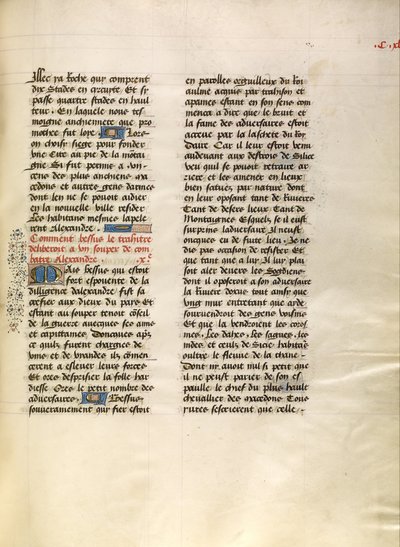 .C. xl
Illec ya Roche quy comprent
dix Stades en circuyte Et sy
passe quattre stades en haul
teur. En laquelle nous tes
moigne anchiennete que pro
mothee fut loye Lors
on choisy siege pour fonder
vne Cite au pie de la mōtai
gne Sy fut permis a vii.
cens des plus anchiens ma
cedons et autres gens darmes
dont len ne se pouoit aidier
en la nouuelle ville resider
Les habitans mesmes lapele
rent Alexandre.
Comment bessus le trahitre
deliberoit a vn soupper de com
batre Alexandre. x.e
Mais bessus qui estoit
fort espouente de la
dilligence dalexandre fist sa
crefier aux dieux du pays Et
estant au soupper tenoit cōseil
de la guerre auecques ses amis
et capittaines Doncques aprs
ce quilz furent chargies de
vins et de viandes ilz cōmen
cerent a esleuer leurs forces
Et ores desprisier la folle har
diesse Ores le petit nombre des
aduersaires. Bessus
souuerainement qui fier estoit
en parolles orguilleux du Roi
aulme acquis par trahison et
apaines estant en son sens com
menca a dire que le bruit et
la fame des aduersaires estoit
accreue par la laschete du Roy
Daire Car il leur estoit venu
audeuant aux destrois de Silice
veu quil se pouoit retraire ar
riere et les amener en lieux
bien fatues par nature dont
en leur oposant tant de Riuieres
Tant de desers lieux Tant de
Montaignes Esquelz se il eust
surprins laduersaire Il neust
oncques eu de fuite lieu, Je ne
die pas occasion de resister Et
que tant que a luy Il luy plai
soit aler deuers les Sogdiens
dont il oposeroit a son aduersaire
la Riuiere doxus tout ainsi que
vng mur entretant que aide
souruendroit des gens voisins
Et que la vendroient les coros
mes. Les dahes, les sagues, les
indes et ceulz de Sicie habitās
oultre le fleuue de la thane.
Dont ny auoit nul si petit que
il ne peust parier de son es
paulle le chief du plus hault
cheuallier des macedons Tous
yures sescrierent que celle